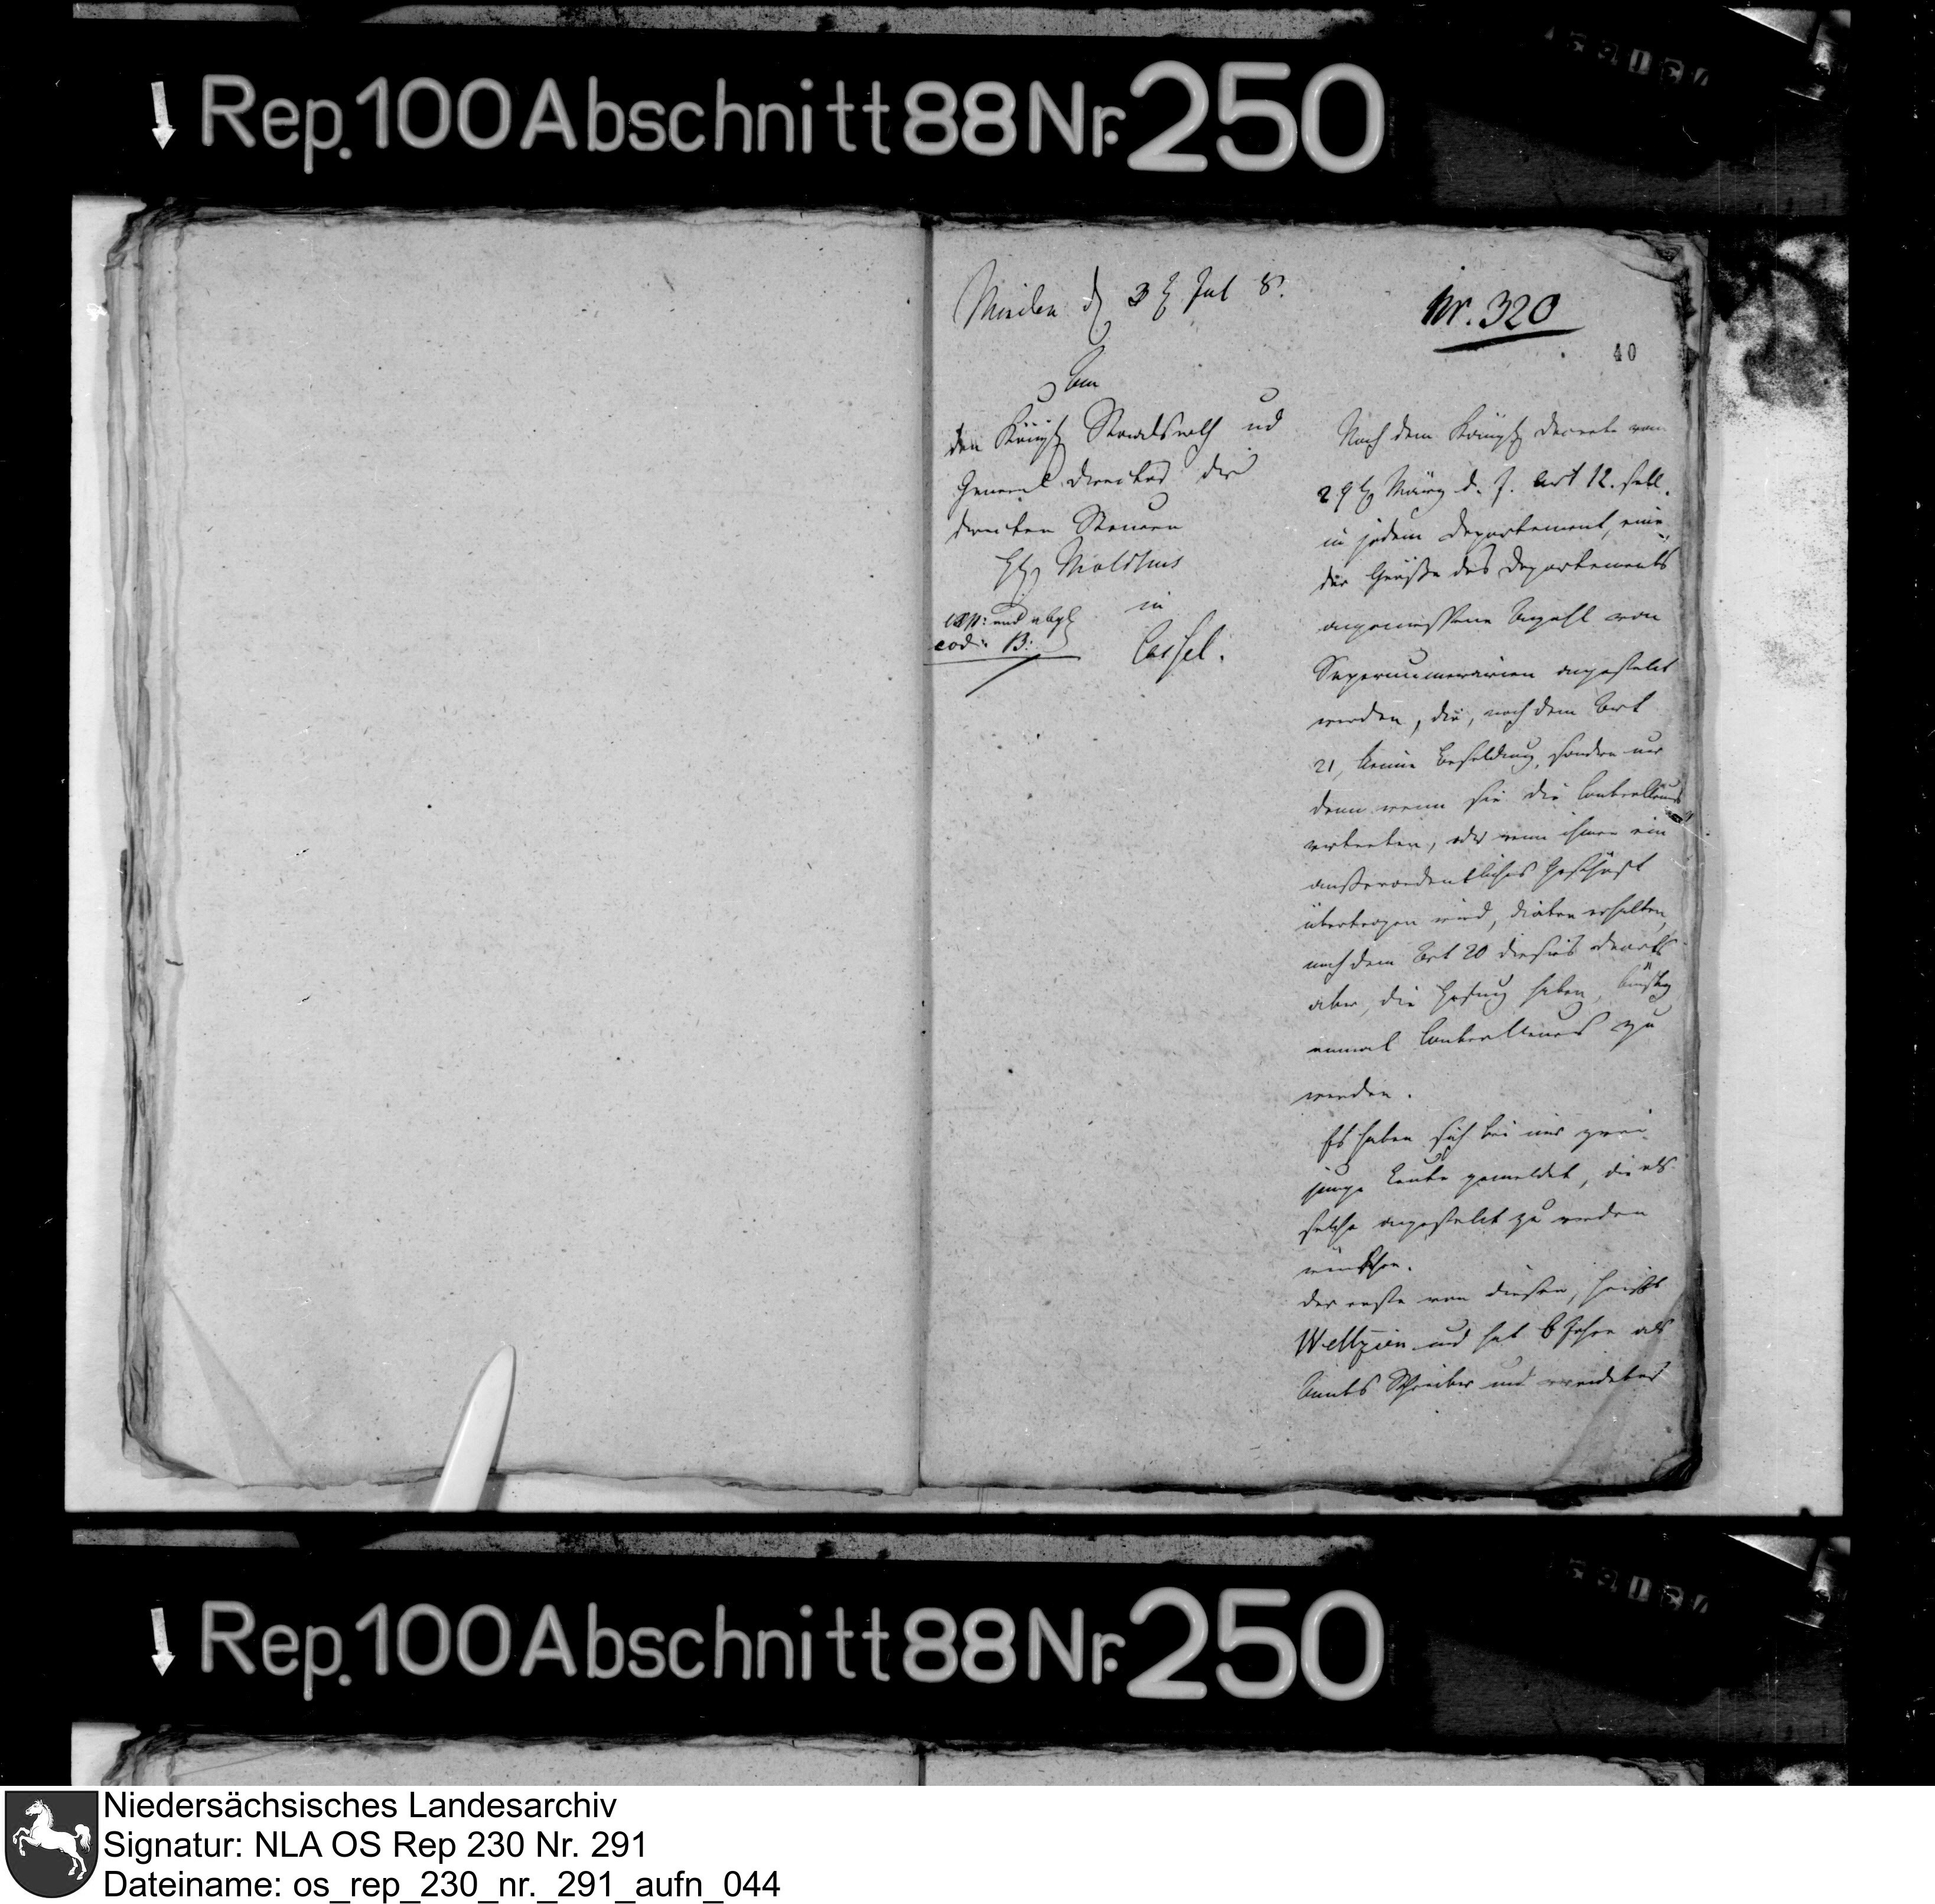 Rep. 100 Abschnitt 88 Nr. 250
Minden d 3t Jul 8.
Nr. 320
40
An
den Königl Staatsrath und
General Director der
directen Steuern
H Malchus
in
Cassel.
exp: und abgl
eod: B:
Nach dem Königl Decrete vom
29t März d. J. Art 12. soll
in jedem Departement, eine
der Größe des Departements
angemessene Anzahl von
Supernumerarien angestelt
werden, die, nach dem Art
21, keine Besoldung, sondern nur
dann wenn sie die Controlleurs
vertreten, oder wenn ihnen ein
außerordentliches Geschäft
übertragen wird, Diäten erhalten,
nach dem Art 20 dieses Decrets
aber, die Hofnung haben, künftig
einmal Controlleurs zu
werden.
Es haben sich bei mir zwei
junge Leute gemeldet, die als
solche angestelt zu werden
wünschen.
Der erste von diesen, heißt
Weltzien und hat 6 Jahre als
Amts Schreiber und vereideter
Rep. 100 Abschnitt 88 Nr. 250
Niedersächsisches Landesarchiv
Signatur: NLA OS Rep 230 Nr. 291
Dateiname: os_rep_230_nr._291_aufn_044